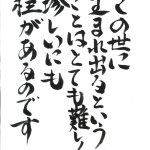 この世に
生まれ出るという
ことはとても難しく
珍しいにも
程があるのです